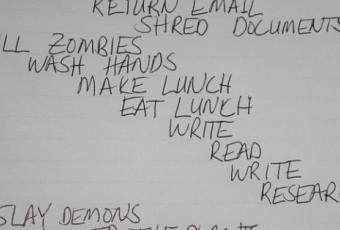 RETURN EMAIL
SHRED DOCUMENTS
ZOMBIES
WASH HANDS
MAKE LUNCH
EAT LUNCH
WRITE
READ
WRITE
SLAY DEMONS